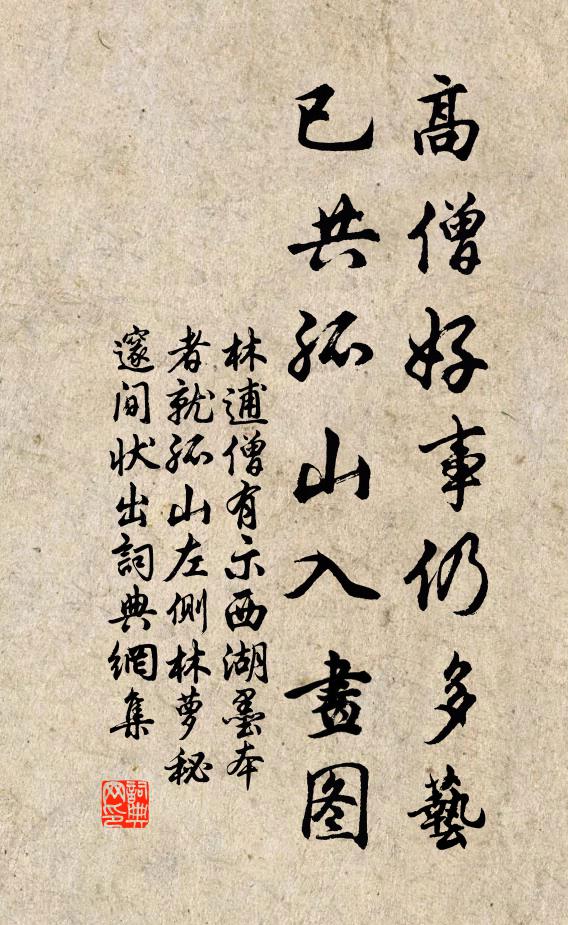 高僧好事仍多藝
已共孤山入畫图
林逋僧有示西湖墨本
者就孤山左側林萝秘
邃间状出詞典網集
詞典网印